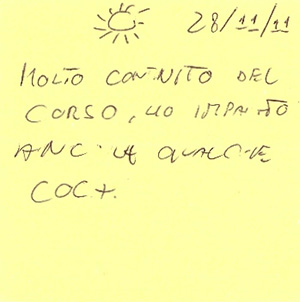 28/11/11
MOLTO CONTNITO DEL
CORSO, HO IMPARATO
ANCHE QUALCHE
COCA.